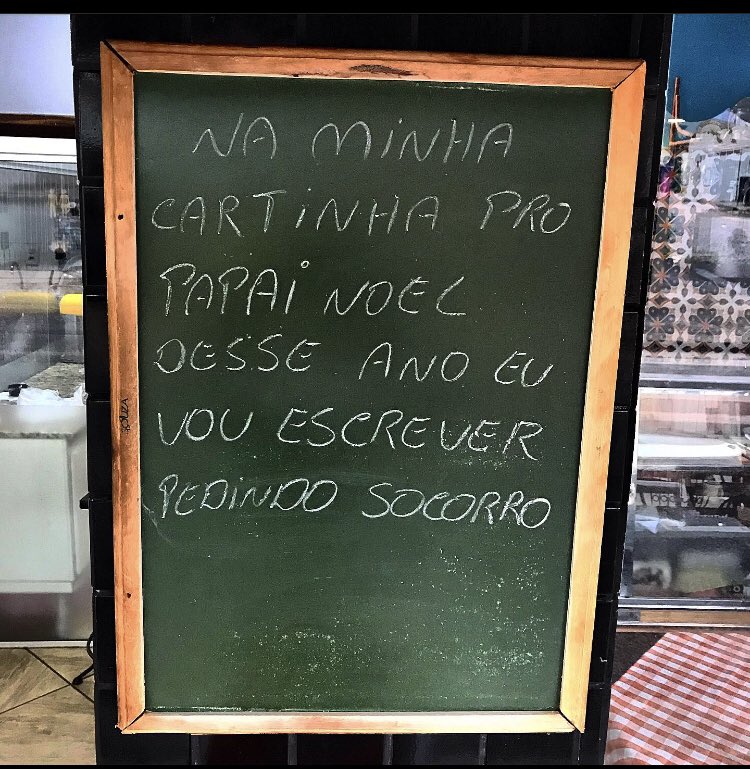 NA MINHA
CARTINHA PRO
PAPAI NOEL
DESSE ANO EU
VOU ESCREVER
PEDINDO SOCORRO